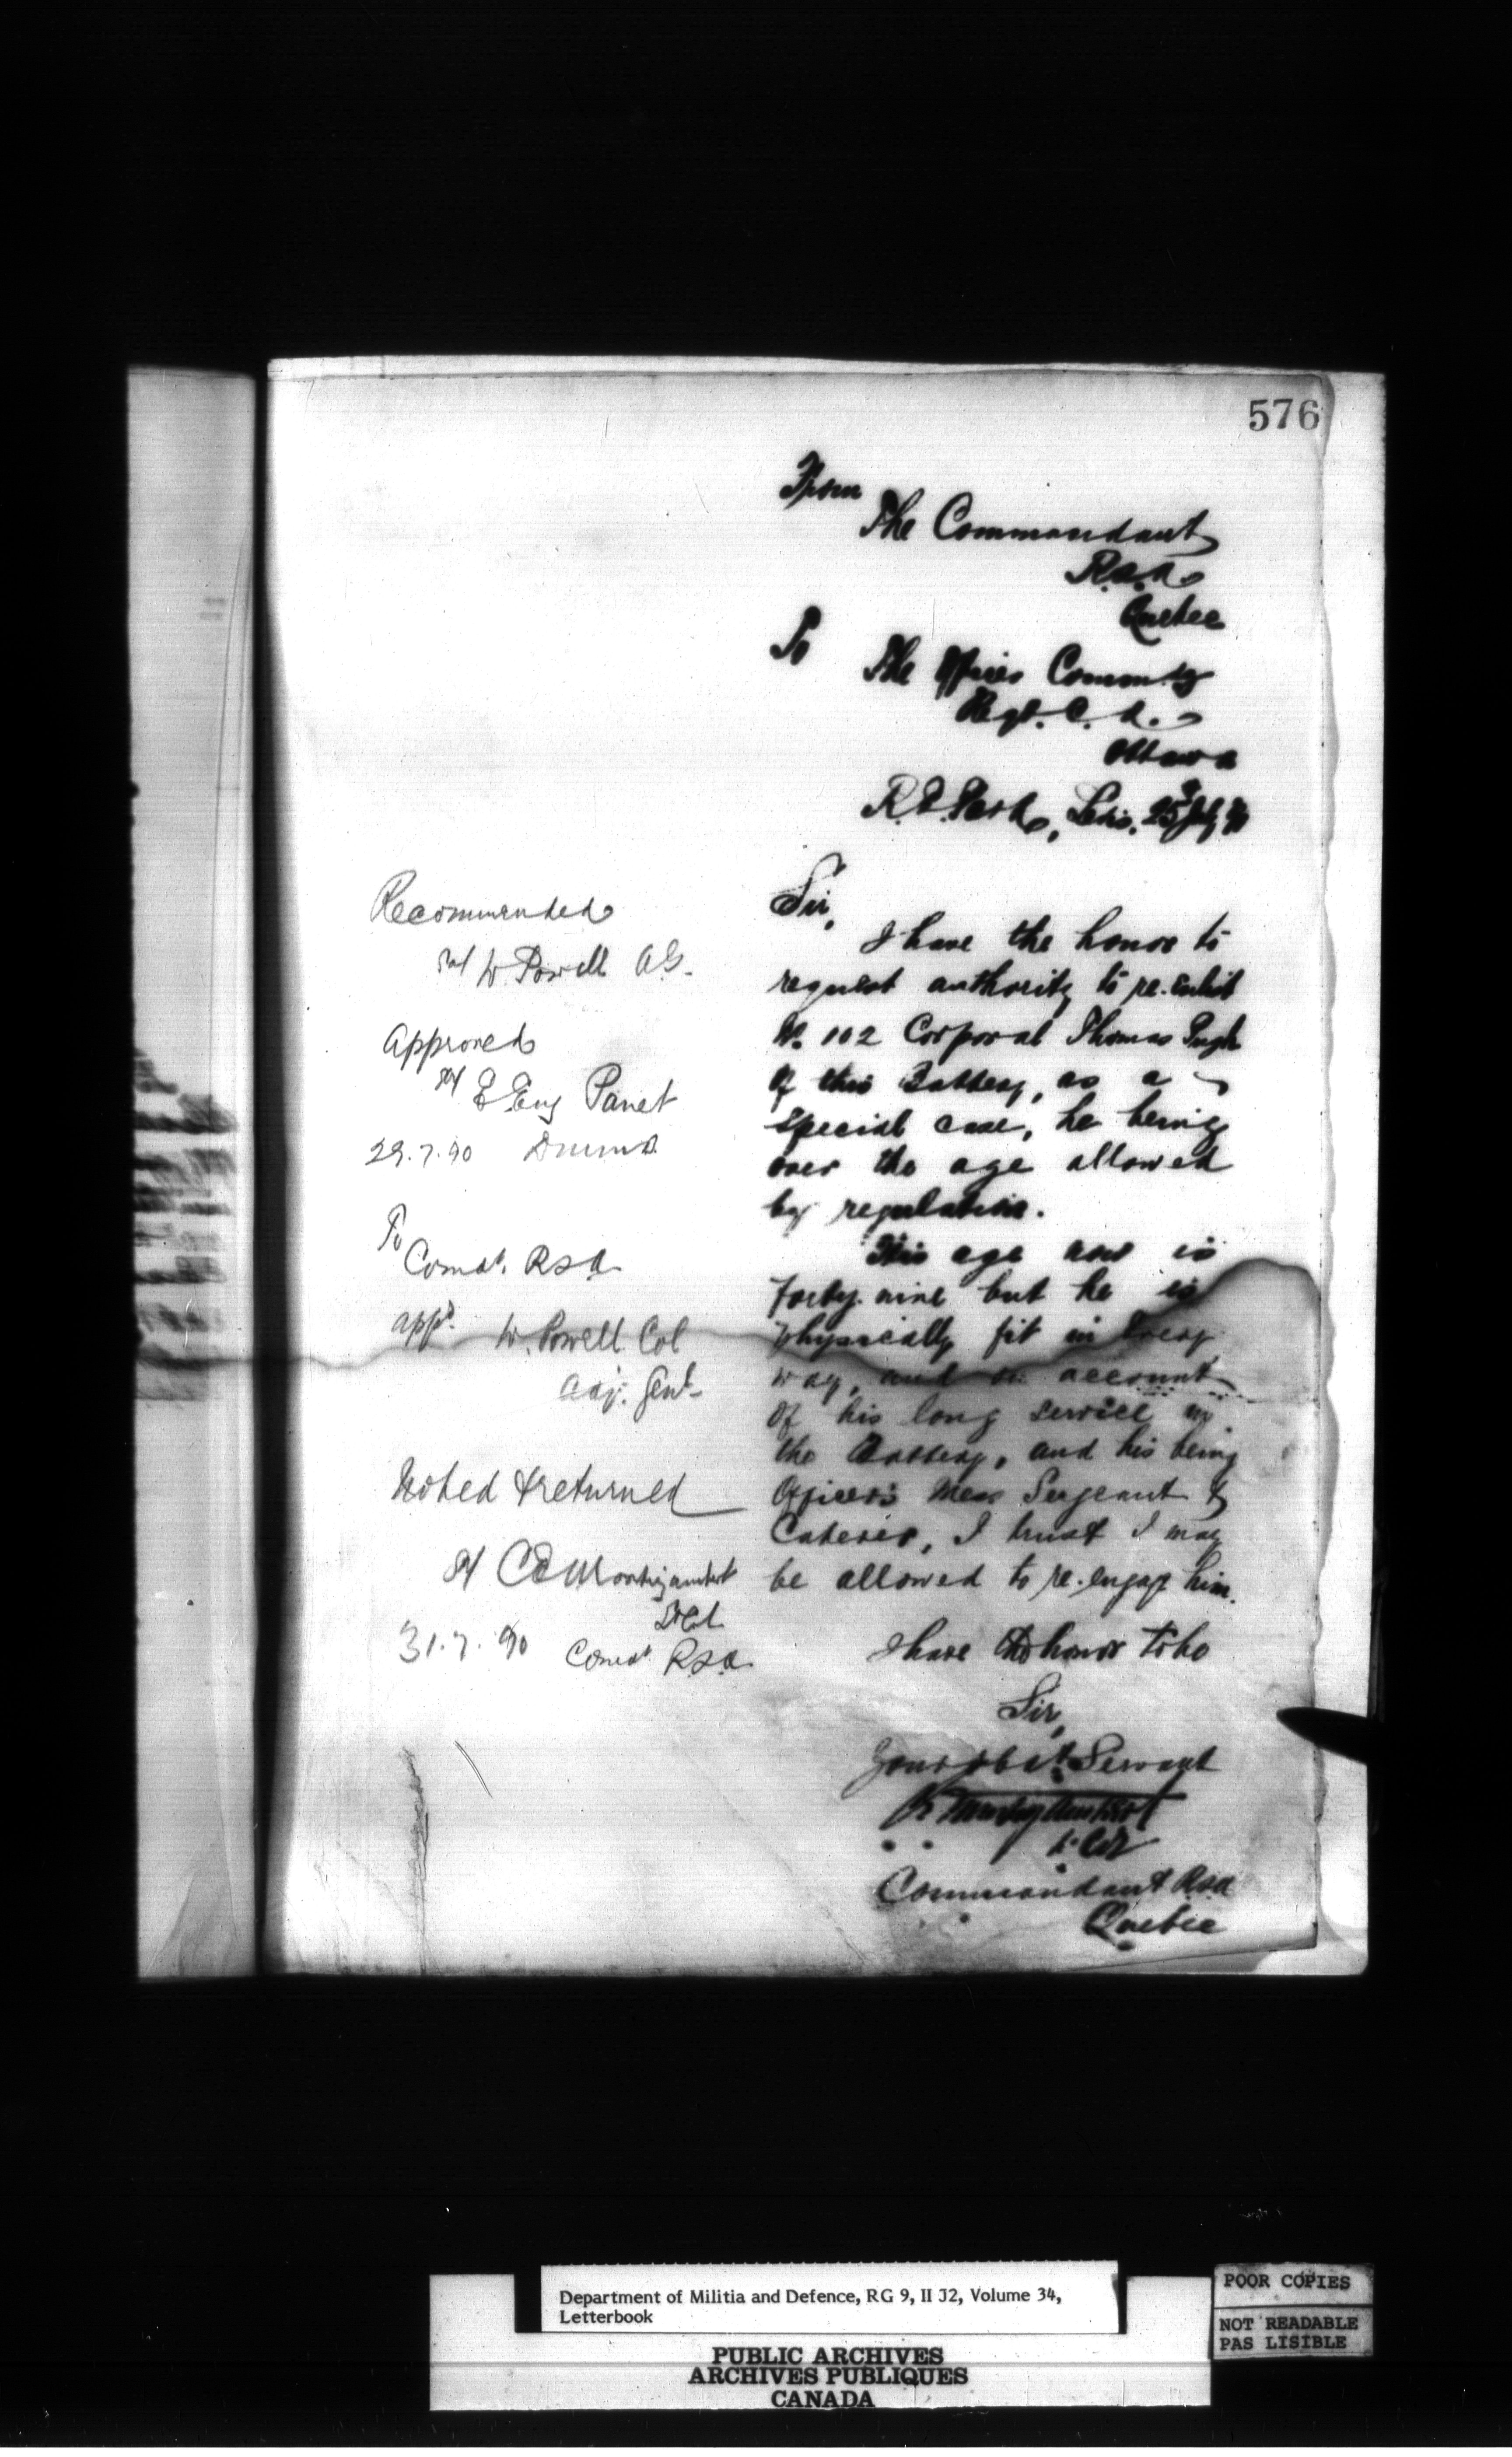 576
From
The Commandant
R.S.A.
Quebec
To
The Officer Commdg
Regt. C. A.
Ottawa
Levis, 25 July 90
Sir,
I have the honor to
request authority to re-enlist
No. 102 Corporal Thomas Pugh
of this Battery, as a
special case, he being
over the age allowed
by regulation.
His age now is
forty-nine but he is
physically fit in every
way, and on account
of his long service in
the Battery, and his being
Officers Mess Sergeant &
Caterer, I trust I may
be allowed to re-engage him.
I have the honor to be
Sir,
Your obdt. Servant
C E Montizambert
Lt. Col
Commandant RSA
Quebec
Recommended
W Powell AG.
Approved
E. Eug Panet
29.7.90 DMM&D
To
Comdt. RSA
appd. W. Powell Col
Adj. Genl
Noted & returned
C E Montizambert
Lt Col
31.7.90 Comdt RSA
Department of Militia and Defence, RG 9, II J2, Volume 34,
Letterbook
PUBLIC ARCHIVES
ARCHIVES PUBLIQUES
CANADA
POOR COPIES
NOT READABLE
PAS LISIBLE